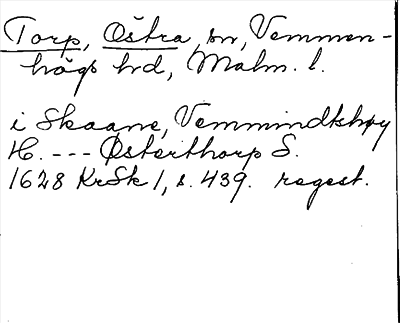 Torp, Östra, sn, Vemmen-
högs hd, Malm. l.
i Skaane, Vemmindtshøy
H. --- Østerthorp S.
1628 KrSk 1, s. 439. regest.